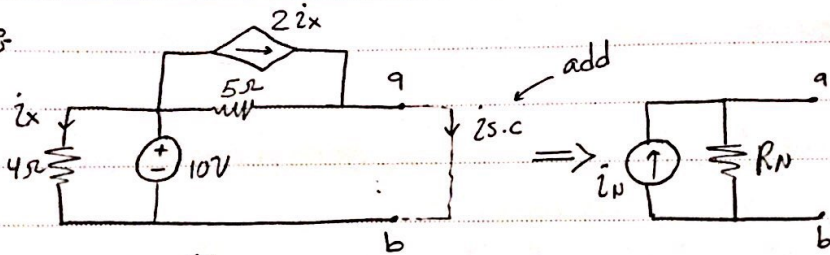 2ix
5Ω
a
add
a
ix
is.c
4Ω
+
-
10V
⇒
iN
RN
b
b